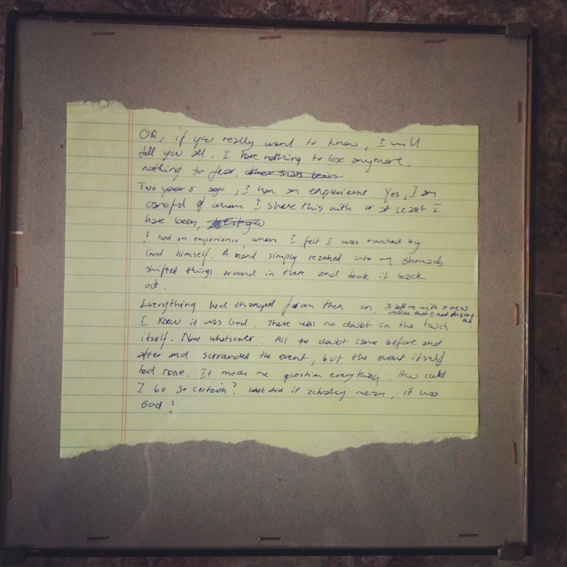 OR, if you really want to know, I will
tell you all. I have nothing to lose anymore,
nothing to fear,
Two years ago, I had an experience. Yes, I am
careful of whom I share this with or at least I
have been,
I had an experience, when I felt I was touched by
God himself. A hand simply reached into my stomach,
shifted things around in there and took it back
out.
Everything had changed from then on.
I knew it was God. There was no doubt in the touch
itself. None whatsoever. All the doubt came before and
after and surrounded the event, but the event itself
had none. It made me question everything. How could
I be so certain? What did it actually mean, it was
God?